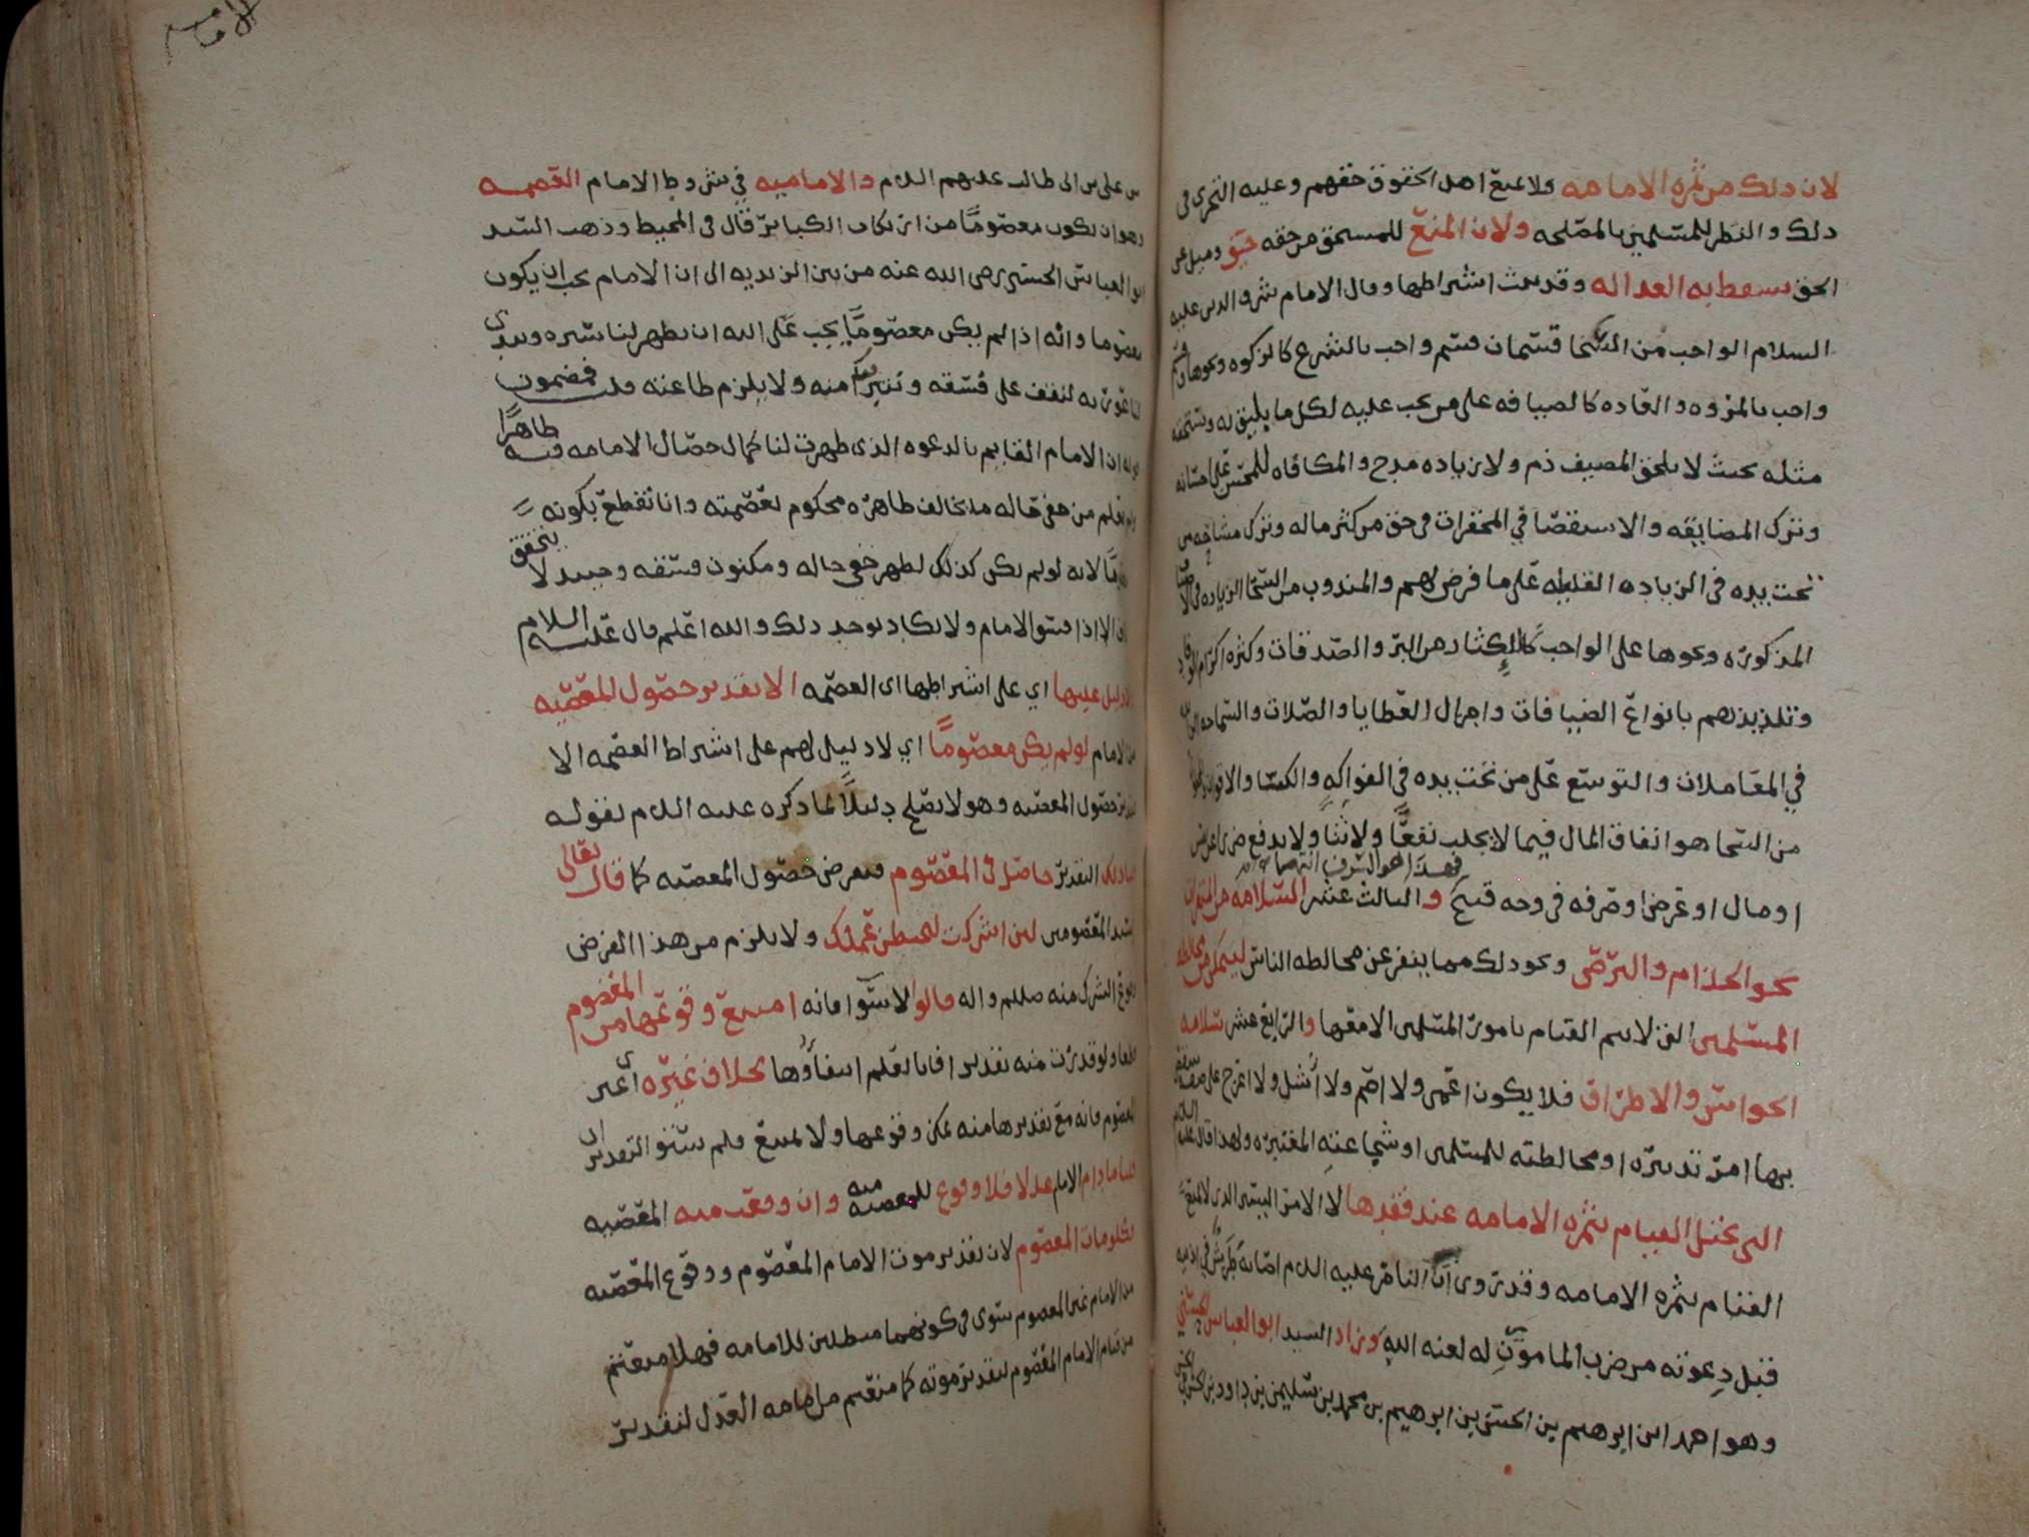 لان ذلك من ثمره الامامه ولا يمنع اهل الحقوق حقهم وعليه التحرى فى
ذلك والنظر للمسلمين بالمصلحه ولان المنع للمستحق من حقه حيف وميل عن
الحق يسقط به العداله وقد ثبت اشتراطها وقال الامام شرف الدين عليه
السلام الواجب من السخا قسمان قسم واجب بالشرع كالزكوه ونحوها وقسم
واجب بالمروه والعاده كالضيافه على من يجب عليه لكل ما يليق به ويستحقه
مثله بحيث لا يلحق المضيف ذم ولا زياده مدح والمكافاه للمحسن على احسانه
وترك المضايقه والاستقصا في المحقرات فى حق من كثر ماله وترك مشاحه من
تحت يده فى الزياده القليله على ما فرض لهم والمندوب من السخا الزياده فى
المذكوره ونحوها على الواجب كالاكثار من البر والصدقات وكثره اكرام
وتلذيذهم بانواع الضيافات واجزال العطايا والصلات والسماحه
في المعاملات والتوسع على من تحت يده فى الفواكه والكسا والاقوات
من السخا هو انفاق المال فيما لا يجلب نفعًا ولا ثنًا ولا يدفع ضررا عن عرض
فهذا هو السرف انتهى
او مال او عرض او صرفه فى وجه قبيح والثالث عشر السلامه من المنفرات
نحو الجذام والبرص ونحو ذلك مما ينفر عن مخالطه الناس ليتمكن من مخالطه
المسلمين التى لا يتم القيام بامور المسلمين الا معها والرابع عشر سلامه
الحواس والاطراف فلا يكون اعمى ولا اصم ولا أشل ولا اعرج على صفه
بها امر تدبيره او مخالطته للمسلمين او شجاعته المعتبره ولهذا قال عليه السلام
التى يختل القيام بثمره الامامه عند فقدها لا الامر اليسير الذى لا يمنع
القيام بثمره الامامه وقد روى ان الناصر عليه السلام اصابه طرش فى اذنيه
قبل دعوته من ضرب المامون له لعنه الله وزاد السيد ابو العباس الحسني
وهو احمد ابن ابرهيم بن الحسن بن ابرهيم بن محمد بن سليمن بن داود بن الحسن بن الحسن
بن علي بن ابى طالب عليهم السلام والاماميه في شروط الامام العصمه
وهو ان يكون معصومًا من ارتكاب الكبائر قال فى المحيط وذهب السيد
ابو العباس الحسنى رضى الله عنه من بين الزيديه الى ان الامام يجب ان يكون
معصوما وانه اذا لم يكن معصومًا يجب على الله ان يظهر لنا سره ويبدى
لنا عواره لنقف على فسقه ونتبرا منه ولا يلزم طاعته قلت فمضمون
قوله ان الامام القايم بالدعوه الذى ظهرت لنا كمال خصال الامامه فيه ظاهرًا
ولم نعلم من خفى حاله ما يخالف ظاهره محكوم بعصمته وانا نقطع بكونه
لانه لو لم يكن كذلك لظهر خفي حاله ومكنون فسقه وحينيذ لا يتحقق
الا اذا فسق الامام ولا يكاد يوجد ذلك والله اعلم قال عليه السلام
ولا دليل عليها اي على اشتراطها اى العصمه الا تقدير حصول المعصيه
من الامام لو لم يكن معصومًا اي لا دليل لهم على اشتراط العصمه الا
تقدير حصول المعصيه وهو لا يصلح دليلًا لما ذكره عليه السلام بقوله
قلنا ذلك التقدير حاصل فى المعصوم فنفرض حصول المعصيه كما قال تعالى
لسيد المعصومين لين اشركت ليحبطن عملك ولا يلزم من هذا الفرض
وقوع الشرك منه صللم واله قالوا لا سوا فانه امتنع وقوعها من المعصوم
قطعا ولو قدرت منه تقديرا فانا نعلم انتفاؤها بخلاف غيره اى غير
المعصوم فانه مع تقديرها منه يمكن وقوعها ولا يمتنع فلم يستو التقديران
قلنا ما دام الامام عدلا فلا وقوع للمعصيه منه وان وقعت منه المعصيه
فكلو مات المعصوم لان تقدير موت الامام المعصوم ووقوع المعصيه
من الامام غير المعصوم سوى فى كونهما مبطلين للامامه فهلا منعتم
من قيام الامام المعصوم لتقدير موته كما منعتم من امامه العدل لتقدير